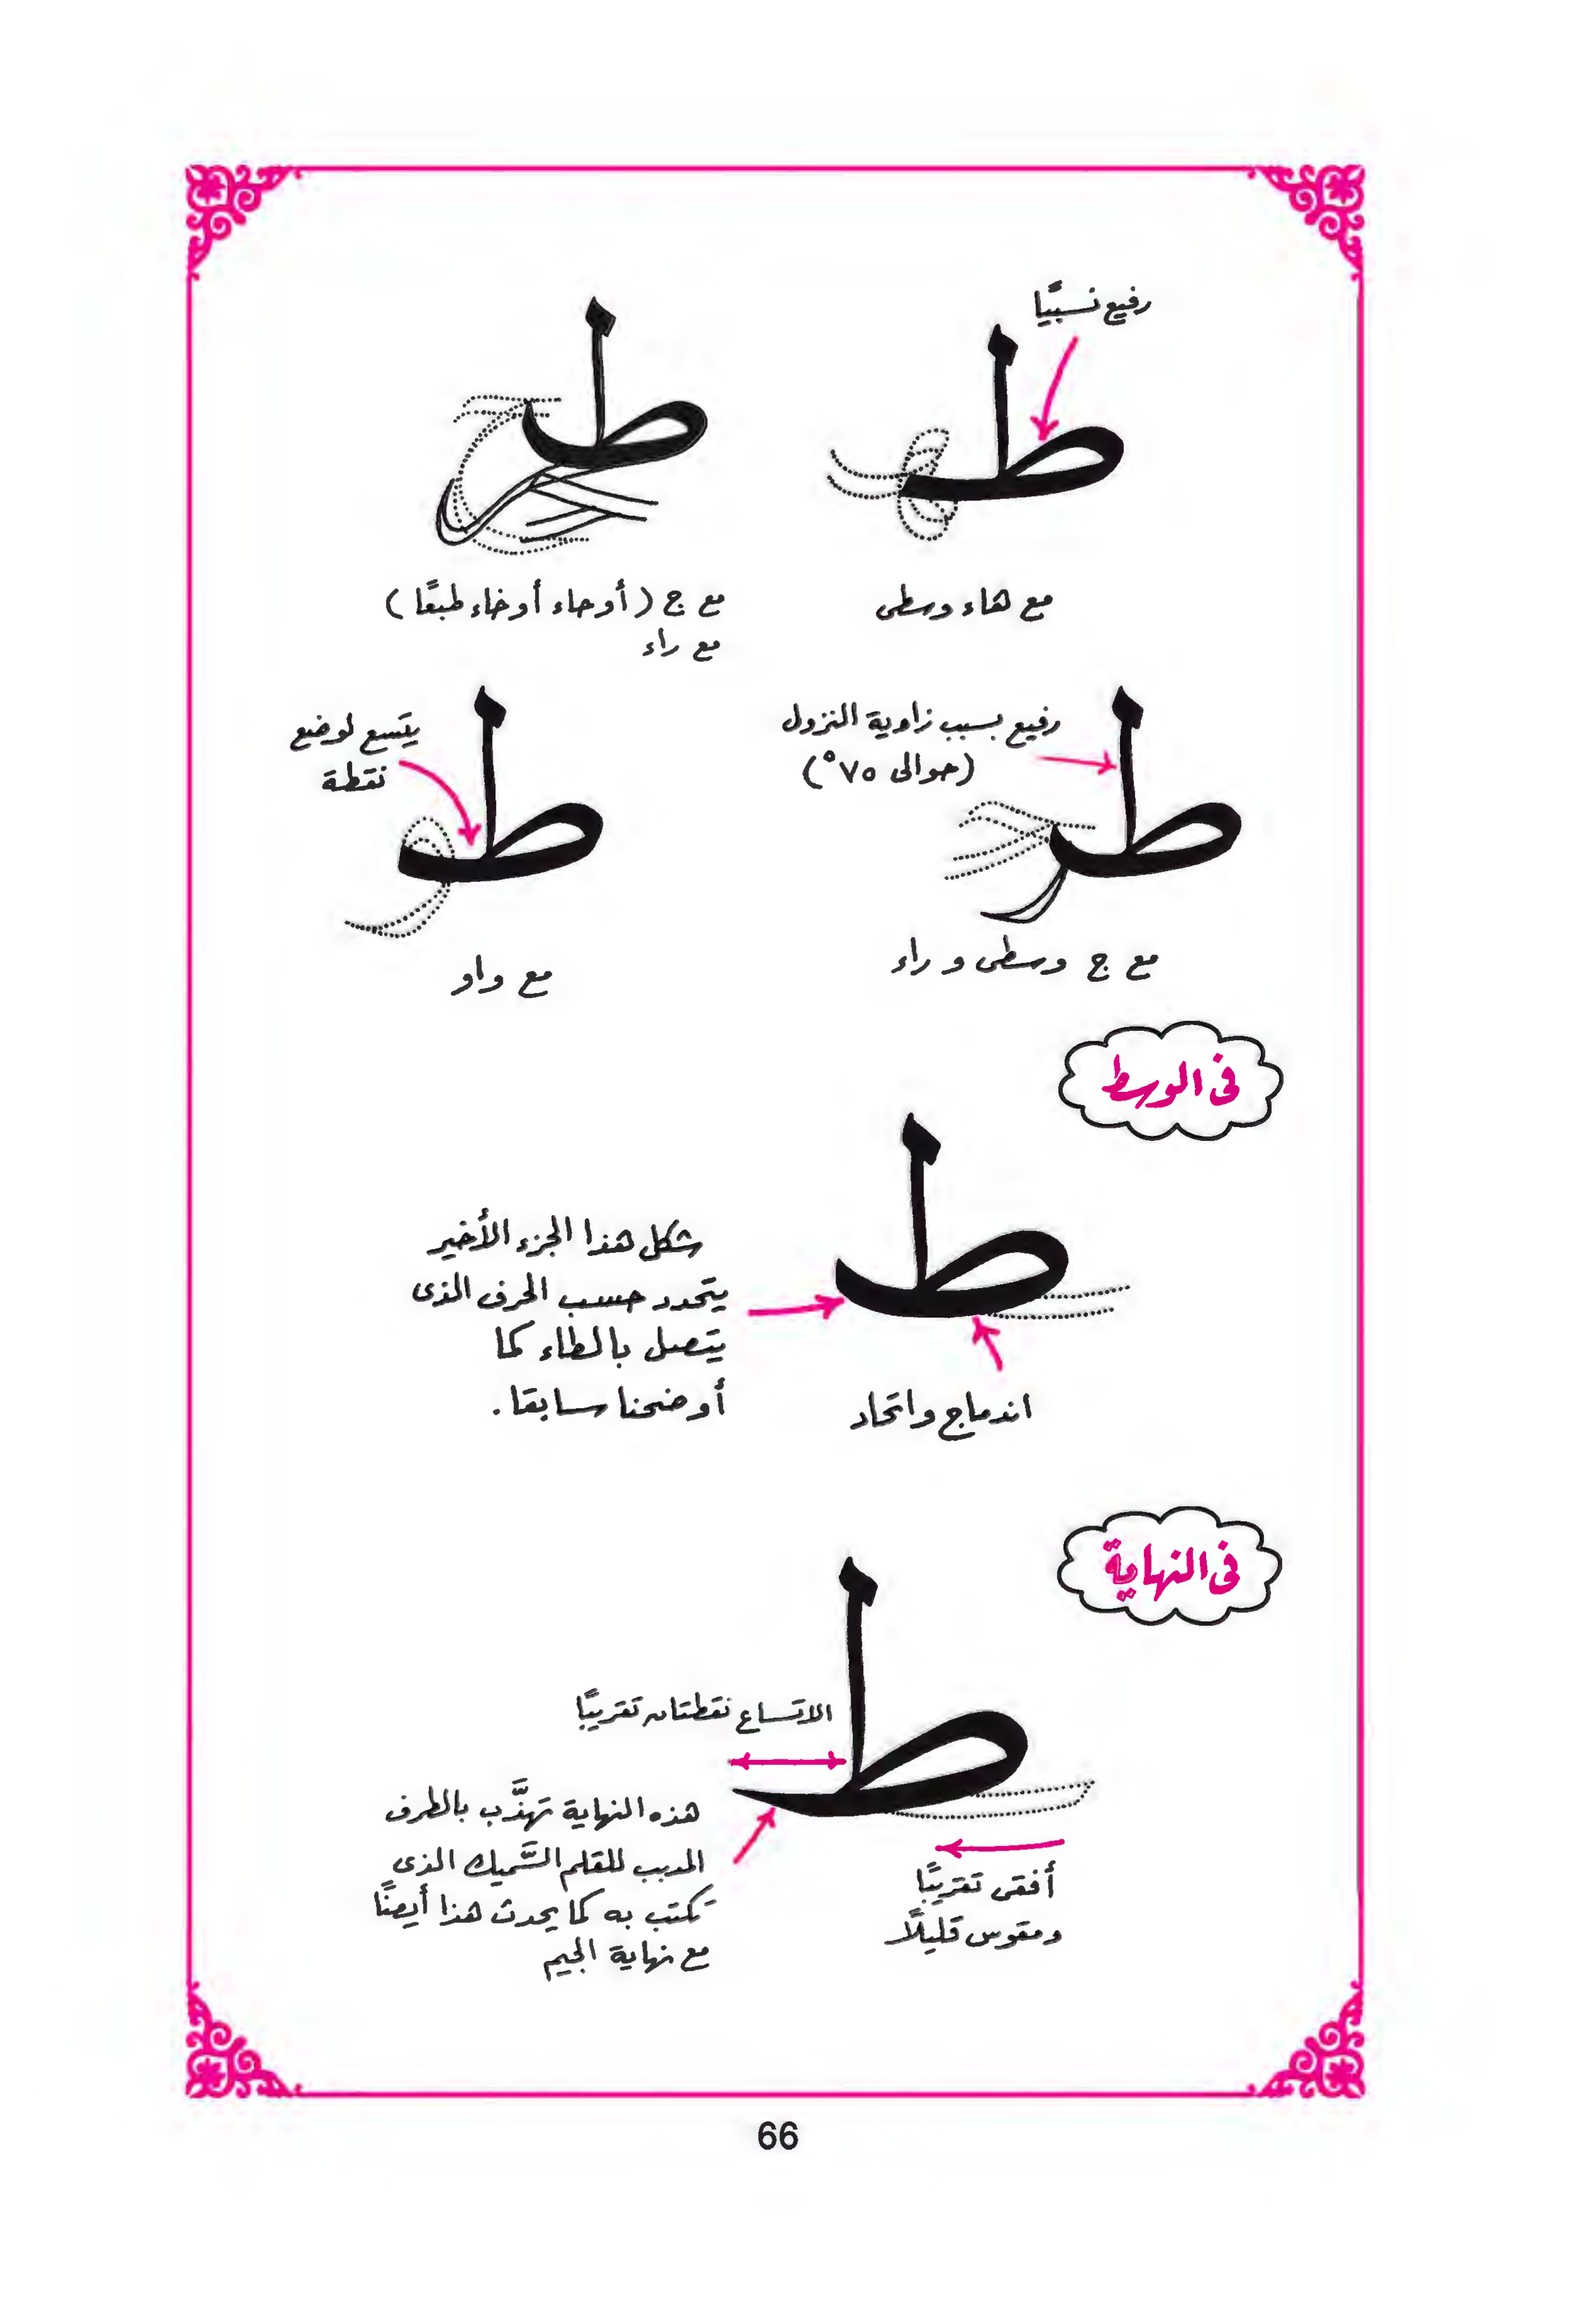 رفيع نسبيًا
ط
ط
مع هاء وسطى
مع ج (أوحاء أوخاء طبعًا)
مع راء
رفيع بسبب زاوية النزول
(حوالى ٧٥°)
ط
يتسع لوضع
نقطة
ط
مع ج وسطى و راء
مع واو
فى الوسط
ط
شكل هذا الجزء الأخير
يتحدد حسب الحرف الذى
يتصل بالطاء كما
أوضحنا سابقا.
اندماج واتحاد
فى النهاية
ط
الاتساع نقطتان تقريبًا
هذه النهاية تهذَّب بالطرف
المدبب للقلم السَّميك الذى
تكتب به كما يحدث هذا أيضًا
مع نهاية الجيم
أفقى تقريبًا
ومقوس قليلاً
66